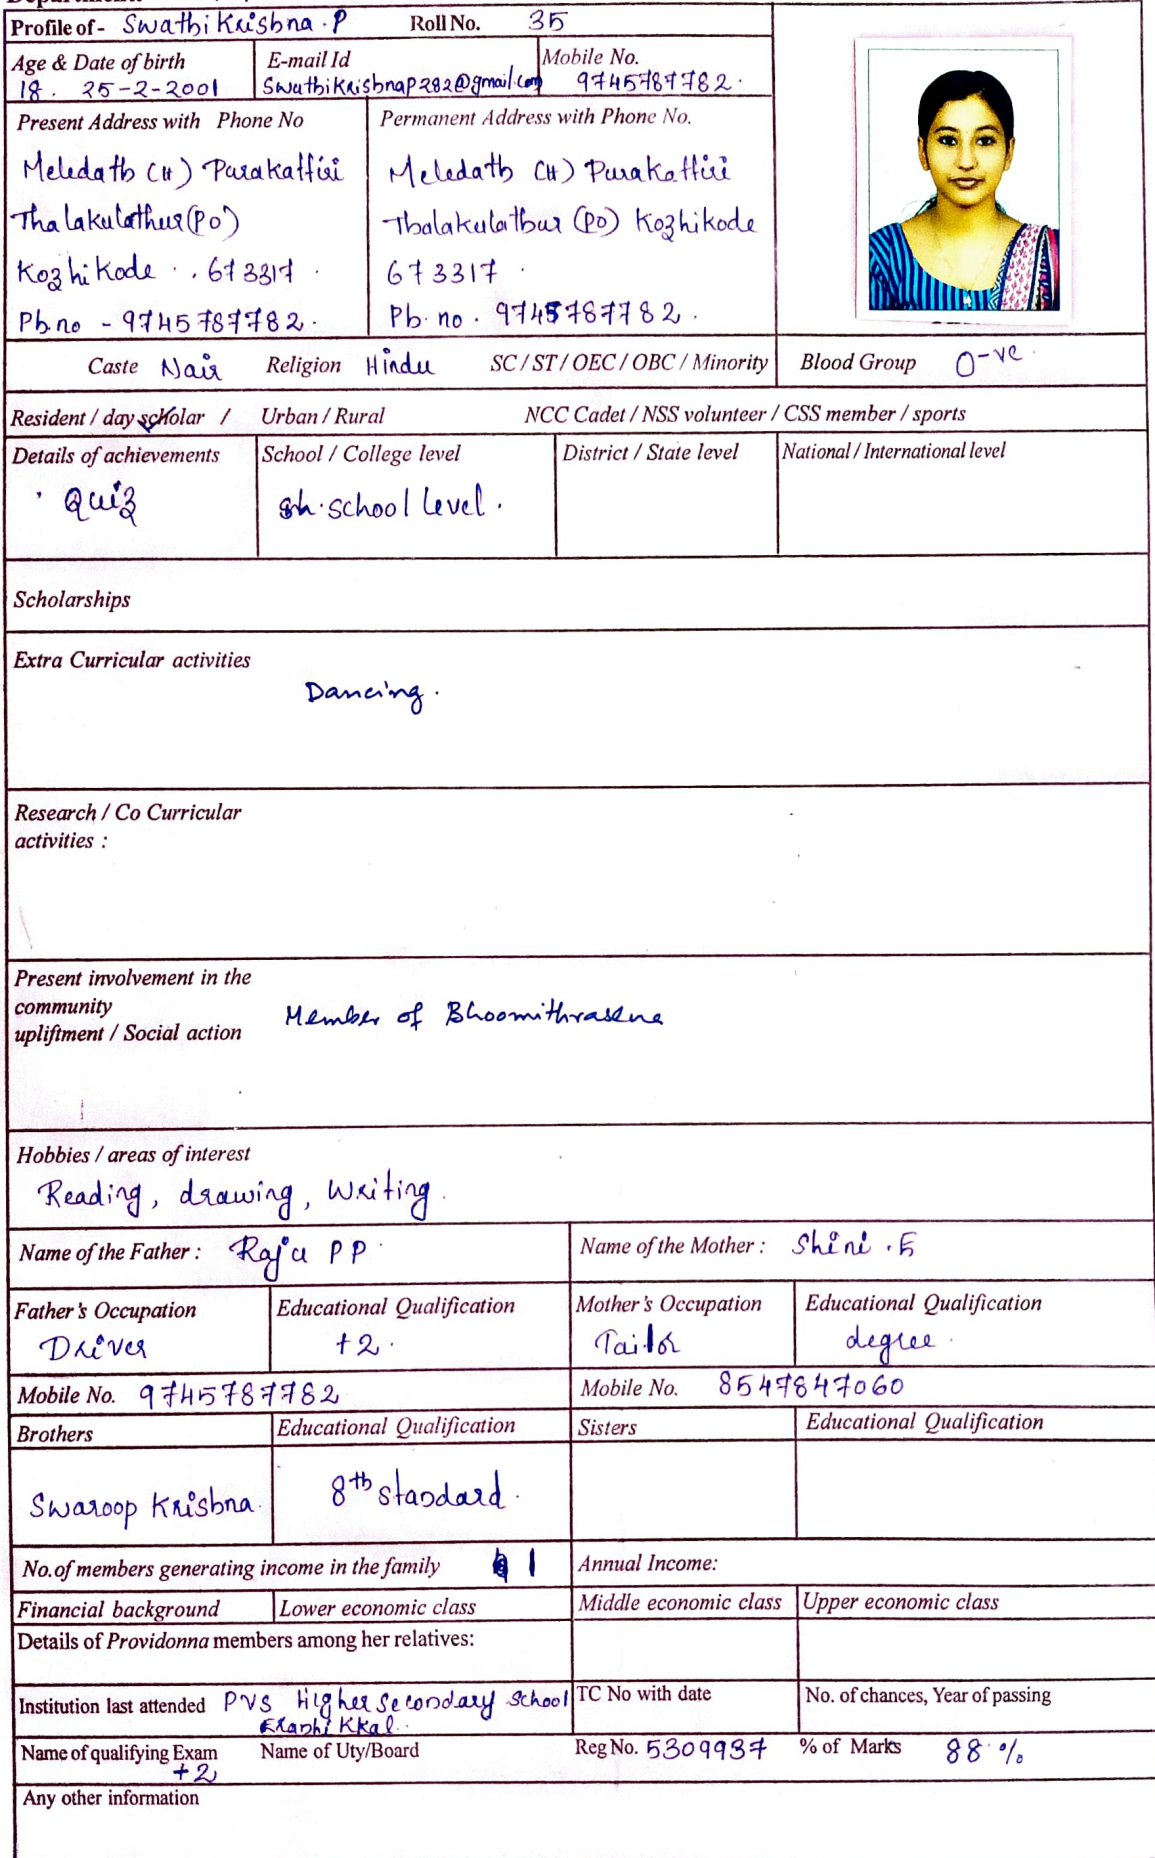 Profile of - Swathi Krishna . P Roll No. 35
Age & Date of birth E-mail Id Mobile No.
18. 25-2-2001 Swathikrishnap282@gmail.com 9745787782.
Present Address with Phone No Permanent Address with Phone No.
Meledath (H) Purakattiri Meledath (H) Purakattiri
Thalakulathur (PO) Thalakulathur (PO) Kozhikode
Kozhikode . . 673317 . 673317 .
Ph.no - 9745787782. Ph. no . 9745787782 .
Caste Nair Religion Hindu SC / ST / OEC / OBC / Minority Blood Group O-ve
Resident / day scholar / Urban / Rural NCC Cadet / NSS volunteer / CSS member / sports
Details of achievements School / College level District / State level National / International level
Quiz school level .
Scholarships
Extra Curricular activities
Dancing .
Research / Co Curricular
activities :
Present involvement in the
community
upliftment / Social action Member of Bhoomithrasena
Hobbies / areas of interest
Reading, drawing, Writing .
Name of the Father : Raju P P Name of the Mother : Shini . E
Father's Occupation Educational Qualification Mother's Occupation Educational Qualification
Driver +2 . Tailor degree .
Mobile No. 9745787782 Mobile No. 8547847060
Brothers Educational Qualification Sisters Educational Qualification
Swaroop Krishna 8th standard .
No. of members generating income in the family 1 Annual Income:
Financial background Lower economic class Middle economic class Upper economic class
Details of Providonna members among her relatives:
Institution last attended PVS Higher Secondary School TC No with date No. of chances, Year of passing
Eranhikkal
Name of qualifying Exam Name of Uty/Board Reg No. 5309937 % of Marks 88 %
+2
Any other information